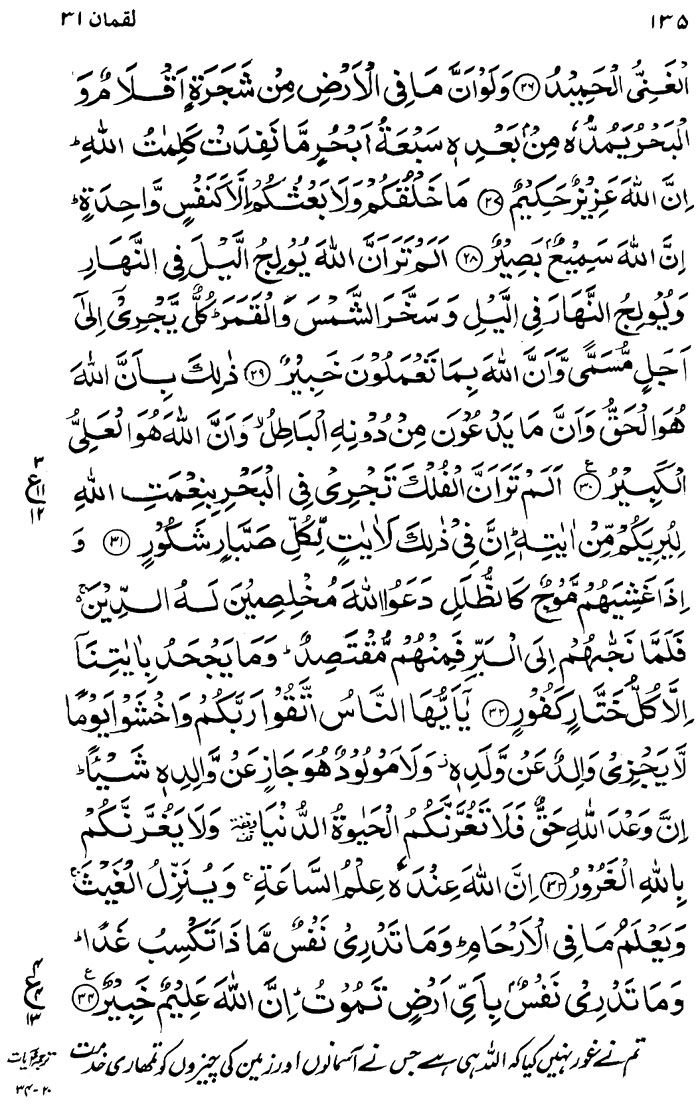 لقمان ۳۱
۱۳۵
الْغَنِىُّ الْحَمِيْدُ ﴿۲۶﴾ وَلَوْ اَنَّ مَا فِى الْاَرْضِ مِنْ شَجَرَةٍ اَقْلَامٌ وَّ
الْبَحْرُ يَمُدُّهٗ مِنْۢ بَعْدِهٖ سَبْعَةُ اَبْحُرٍ مَّا نَفِدَتْ كَلِمٰتُ اللّٰهِ ؕ
اِنَّ اللّٰهَ عَزِيْزٌ حَكِيْمٌ ﴿۲۷﴾ مَا خَلْقُكُمْ وَلَا بَعْثُكُمْ اِلَّا كَنَفْسٍ وَّاحِدَةٍ ؕ
اِنَّ اللّٰهَ سَمِيْعٌۢ بَصِيْرٌ ﴿۲۸﴾ اَلَمْ تَرَ اَنَّ اللّٰهَ يُوْلِجُ الَّيْلَ فِى النَّهَارِ
وَيُوْلِجُ النَّهَارَ فِى الَّيْلِ وَسَخَّرَ الشَّمْسَ وَالْقَمَرَ ؗ كُلٌّ يَّجْرِىْۤ اِلٰٓى
اَجَلٍ مُّسَمًّى وَّاَنَّ اللّٰهَ بِمَا تَعْمَلُوْنَ خَبِيْرٌ ﴿۲۹﴾ ذٰلِكَ بِاَنَّ اللّٰهَ
هُوَ الْحَقُّ وَاَنَّ مَا يَدْعُوْنَ مِنْ دُوْنِهِ الْبَاطِلُ ۙ وَاَنَّ اللّٰهَ هُوَ الْعَلِىُّ
الْكَبِيْرُ ﴿۳۰﴾ اَلَمْ تَرَ اَنَّ الْفُلْكَ تَجْرِىْ فِى الْبَحْرِ بِنِعْمَتِ اللّٰهِ
۳
ع
۱۱
۱۲
لِيُرِيَكُمْ مِّنْ اٰيٰتِهٖ ؕ اِنَّ فِىْ ذٰلِكَ لَاٰيٰتٍ لِّكُلِّ صَبَّارٍ شَكُوْرٍ ﴿۳۱﴾ وَ
اِذَا غَشِيَهُمْ مَّوْجٌ كَالظُّلَلِ دَعَوُا اللّٰهَ مُخْلِصِيْنَ لَهُ الدِّيْنَ ۚ
فَلَمَّا نَجّٰىهُمْ اِلَى الْبَرِّ فَمِنْهُمْ مُّقْتَصِدٌ ؕ وَمَا يَجْحَدُ بِاٰيٰتِنَاۤ
اِلَّا كُلُّ خَتَّارٍ كَفُوْرٍ ﴿۳۲﴾ يٰۤاَيُّهَا النَّاسُ اتَّقُوْا رَبَّكُمْ وَاخْشَوْا يَوْمًا
لَّا يَجْزِىْ وَالِدٌ عَنْ وَّلَدِهٖ ؗ وَلَا مَوْلُوْدٌ هُوَ جَازٍ عَنْ وَّالِدِهٖ شَيْـًٔا ؕ
اِنَّ وَعْدَ اللّٰهِ حَقٌّ فَلَا تَغُرَّنَّكُمُ الْحَيٰوةُ الدُّنْيَا ۥ وَلَا يَغُرَّنَّكُمْ
بِاللّٰهِ الْغَرُوْرُ ﴿۳۳﴾ اِنَّ اللّٰهَ عِنْدَهٗ عِلْمُ السَّاعَةِ ۚ وَيُنَزِّلُ الْغَيْثَ ۚ
وَيَعْلَمُ مَا فِى الْاَرْحَامِ ؕ وَمَا تَدْرِىْ نَفْسٌ مَّاذَا تَكْسِبُ غَدًا ؕ
وَمَا تَدْرِىْ نَفْسٌۢ بِاَىِّ اَرْضٍ تَمُوْتُ ؕ اِنَّ اللّٰهَ عَلِيْمٌ خَبِيْرٌ ﴿۳۴﴾
۴
ع
۴
۱۳
تم نے غور نہیں کیا کہ اللہ ہی ہے جس نے آسمانوں اور زمین کی چیزوں کو تمھاری خدمت
ترجمۂ آیات
۲۰-۳۴